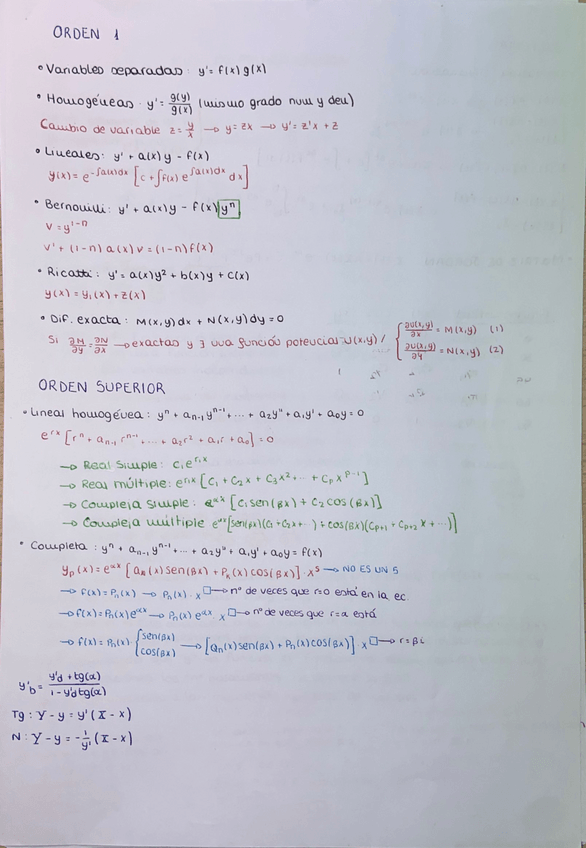 ORDEN 1
• Variables separadas: y' = f(x) g(x)
• Homogéneas: y' = g(y)/g(x) (mismo grado num y den)
Cambio de variable z = y/x → y = zx → y' = z'x + z
• Lineales: y' + a(x)y = f(x)
y(x) = e^{-∫a(x)dx} [c + ∫f(x) e^{∫a(x)dx} dx]
• Bernouilli: y' + a(x)y = f(x) y^n
v = y^{1-n}
v' + (1-n) a(x) v = (1-n) f(x)
• Ricatti: y' = a(x)y² + b(x)y + c(x)
y(x) = y₁(x) + z(x)
• Dif. exacta: M(x,y)dx + N(x,y)dy = 0
Si ∂M/∂y = ∂N/∂x → exactas y ∃ una función potencial U(x,y) / { ∂U(x,y)/∂x = M(x,y) (1)
∂U(x,y)/∂y = N(x,y) (2)
ORDEN SUPERIOR
• Lineal homogénea: y^n + a_{n-1} y^{n-1} + ... + a₂y'' + a₁y' + a₀y = 0
e^{rx} [r^n + a_{n-1} r^{n-1} + ... + a₂r² + a₁r + a₀] = 0
→ Real simple: c₁e^{r₁x}
→ Real múltiple: e^{r₁x} [C₁ + C₂x + C₃x² + ... + C_p x^{p-1}]
→ Compleja simple: e^{αx} [C₁ sen(βx) + C₂ cos(βx)]
→ Compleja múltiple e^{αx} [sen(βx)(C₁ + C₂x + ...) + cos(βx)(C_{p+1} + C_{p+2}x + ...)]
• Completa: y^n + a_{n-1} y^{n-1} + ... + a₂y'' + a₁y' + a₀y = f(x)
y_p(x) = e^{αx} [Q_n(x) sen(βx) + P_n(x) cos(βx)] · x^s → NO ES UN 5
→ f(x) = P_n(x) → P_n(x) · x^□ → nº de veces que r=0 está en la ec.
→ f(x) = P_n(x) e^{αx} → P_n(x) e^{αx} · x^□ → nº de veces que r=α está
→ f(x) = P_n(x) · { sen(βx) cos(βx) → [Q_n(x) sen(βx) + P_n(x) cos(βx)] · x^□ → r = βi
y'_b = (y'_d + tg(α))/(1 - y'_d tg(α))
Tg: Y - y = y' (X - x)
N: Y - y = -1/y' (X - x)